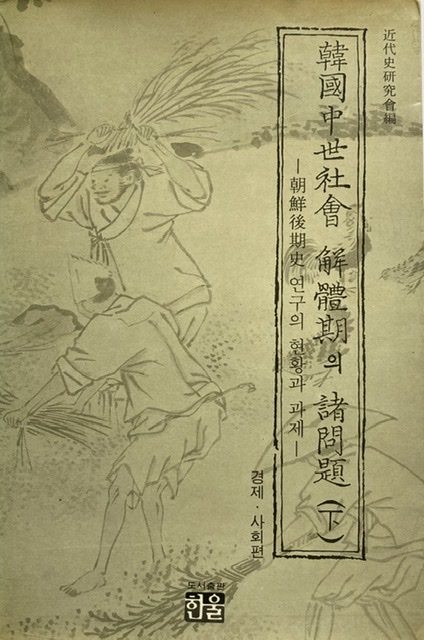 近代史硏究會編
韓國中世社會 解體期의 諸問題(下)
—朝鮮後期史 연구의 현황과 과제—
경제·사회편
도서출판
한울